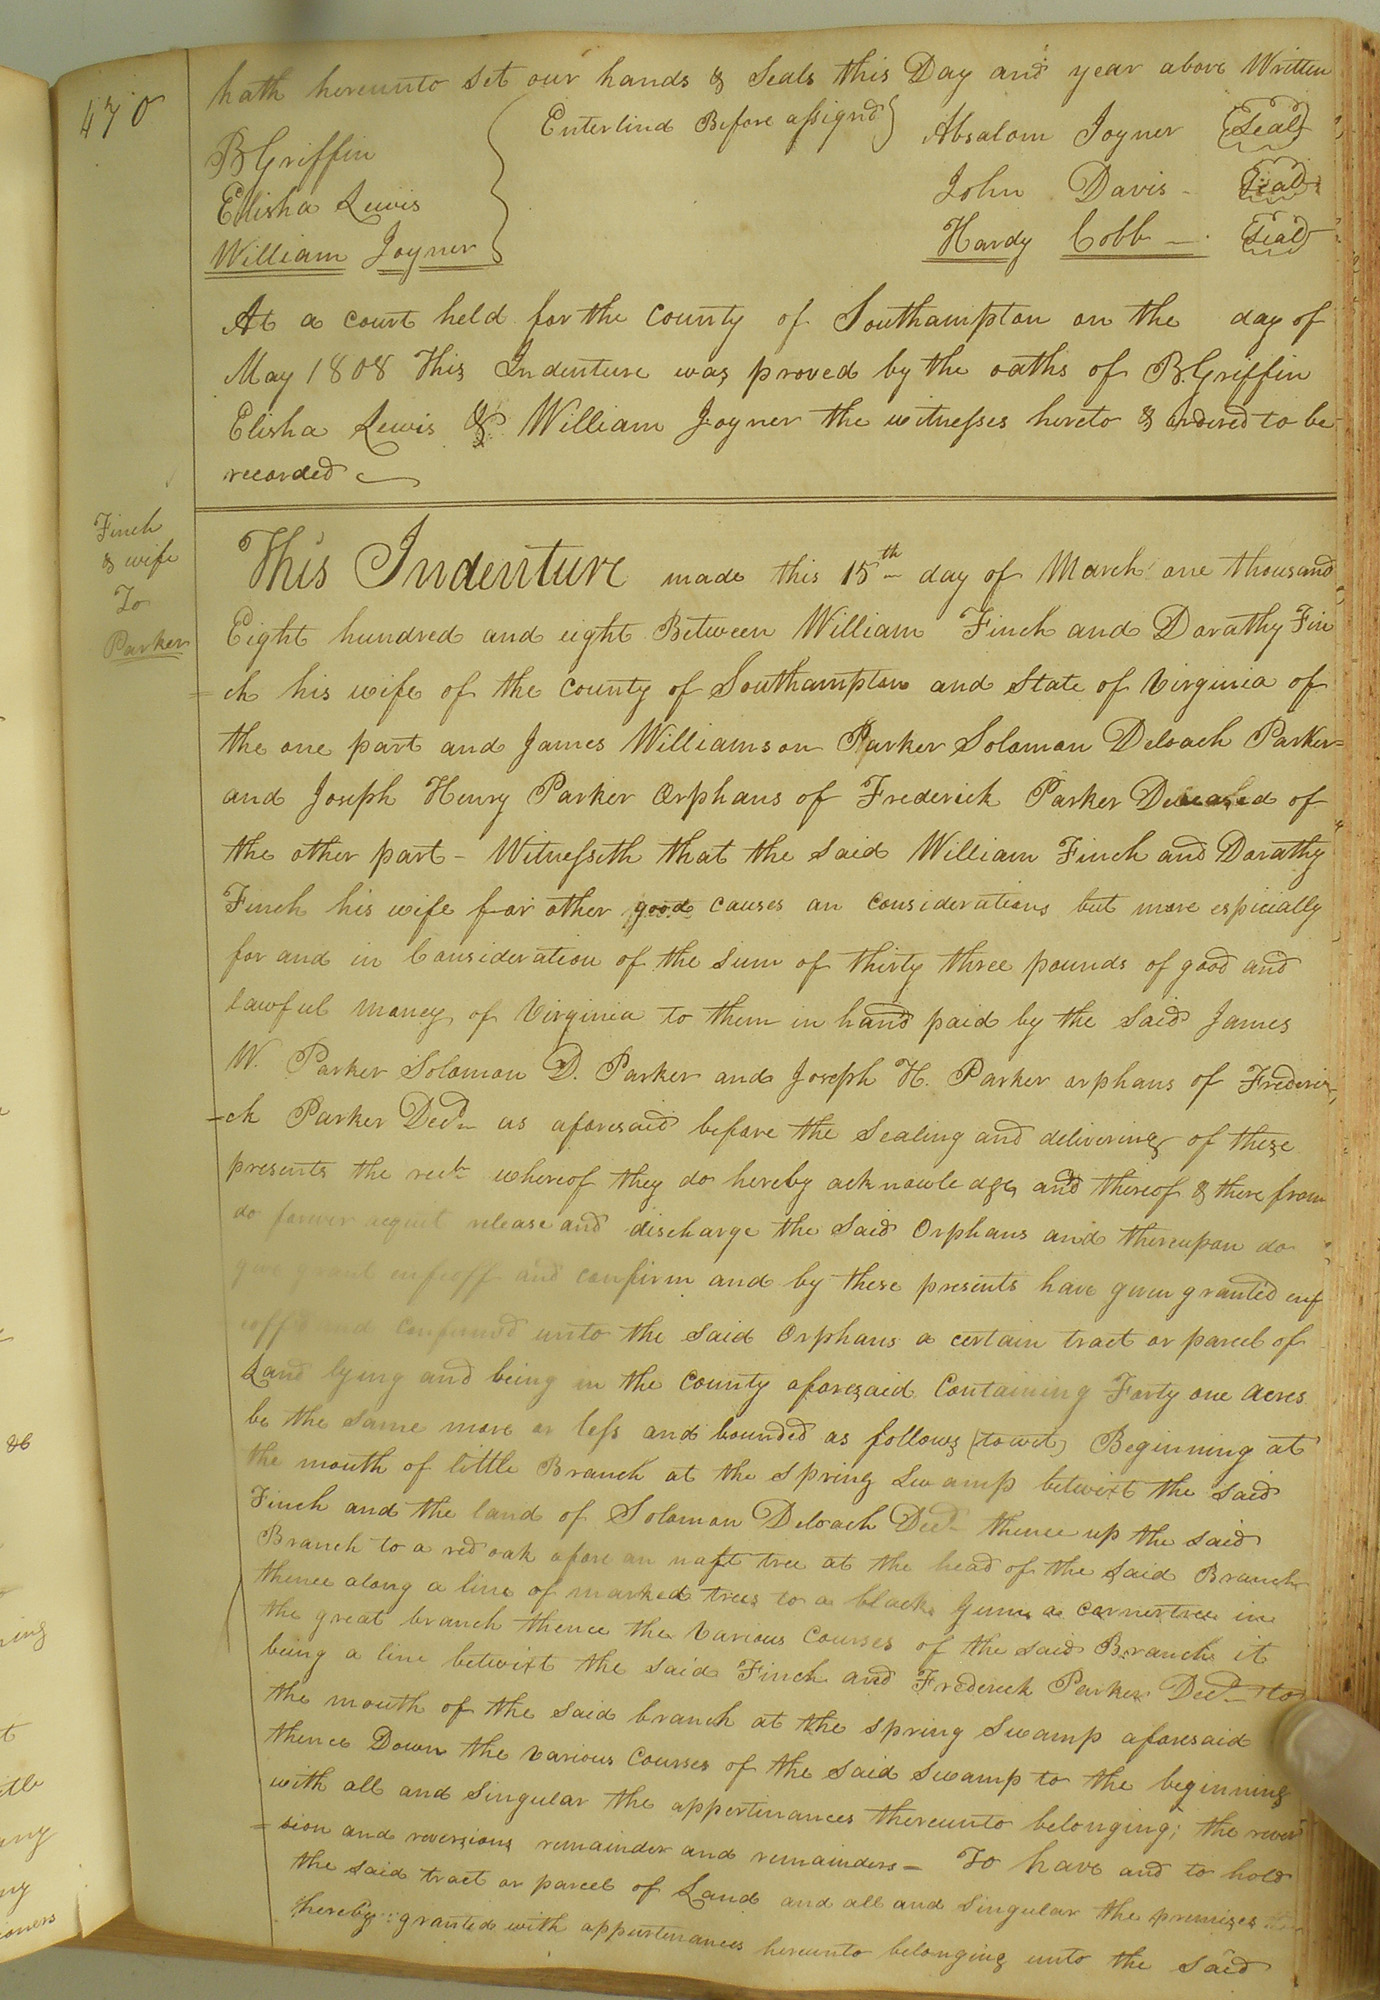 470
hath hereunto set our hands & Seals this Day and year above Written
B Griffin
Elisha Lewis
William Joyner
Enterlind Before assignd
Absalom Joyner Seal
John Davis - Seal
Hardy Cobb - Seal
At a court held for the County of Southampton on the day of
May 1808 This Indenture was proved by the oaths of B. Griffin
Elisha Lewis & William Joyner the witnesses hereto & ordered to be
recorded
Finch
& wife
To
Parker
This Indenture made this 15th day of March one thousand
Eight hundred and eight Between William Finch and Darathy Fin
=ch his wife of the County of Southampton and State of Virginia of
the one part and James Williamson Parker Soloman Deloach Parker
and Joseph Henry Parker Orphans of Frederick Parker Deceased of
the other part - Witnesseth that the said William Finch and Darathy
Finch his wife for other good causes an considerations but more espicially
for and in Consideration of the sum of thirty three pounds of good and
lawful money of Virginia to them in hand paid by the said James
W. Parker Soloman D. Parker and Joseph H. Parker orphans of Frederi
-ck Parker Decd as aforesaid before the sealing and delivering of these
presents the rect whereof they do hereby acknowledge and thereof & therefrom
do forever acquit release and discharge the said Orphans and thereupon do
give grant enfeoff and confirm and by these presents have given granted enf
eoff and confirmed unto the said Orphans a certain tract or parcel of
Land lying and being in the County aforesaid Containing Forty one acres
be the same more or less and bounded as follows (towit) Beginning at
the mouth of little Branch at the Spring Swamp betwixt the said
Finch and the land of Soloman Deloach Decd thence up the said
Branch to a red oak afore an naft tree at the head of the said Branch
thence along a line of marked trees to a black Gum a cornertree in
the great branch thence the various Courses of the said Branch it
being a line betwixt the said Finch and Frederick Parker Decd to
the mouth of the said branch at the spring swamp aforesaid
thence Down the various Courses of the said swamp to the beginning
with all and singular the appertinances thereunto belonging; the rever
=sion and reversions remainder and remainders - To have and to hold
the said tract or parcel of Land and all and singular the premises
thereby granted with appurtenances hereunto belonging unto the said